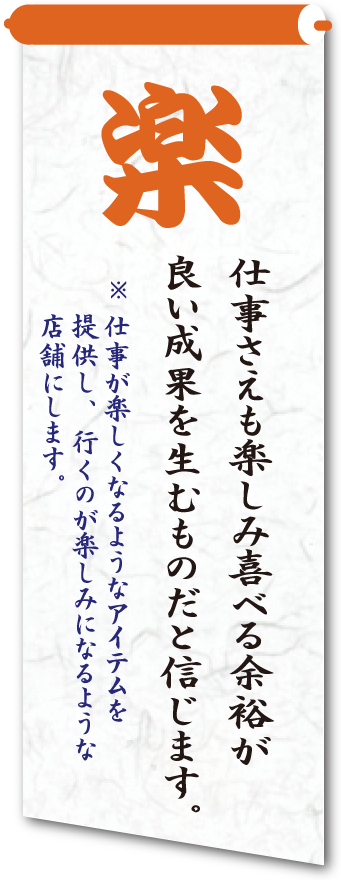 楽
仕事さえも楽しみ喜べる余裕が
良い成果を生むものだと信じます。
※仕事が楽しくなるようなアイテムを
提供し、行くのが楽しみになるような
店舗にします。